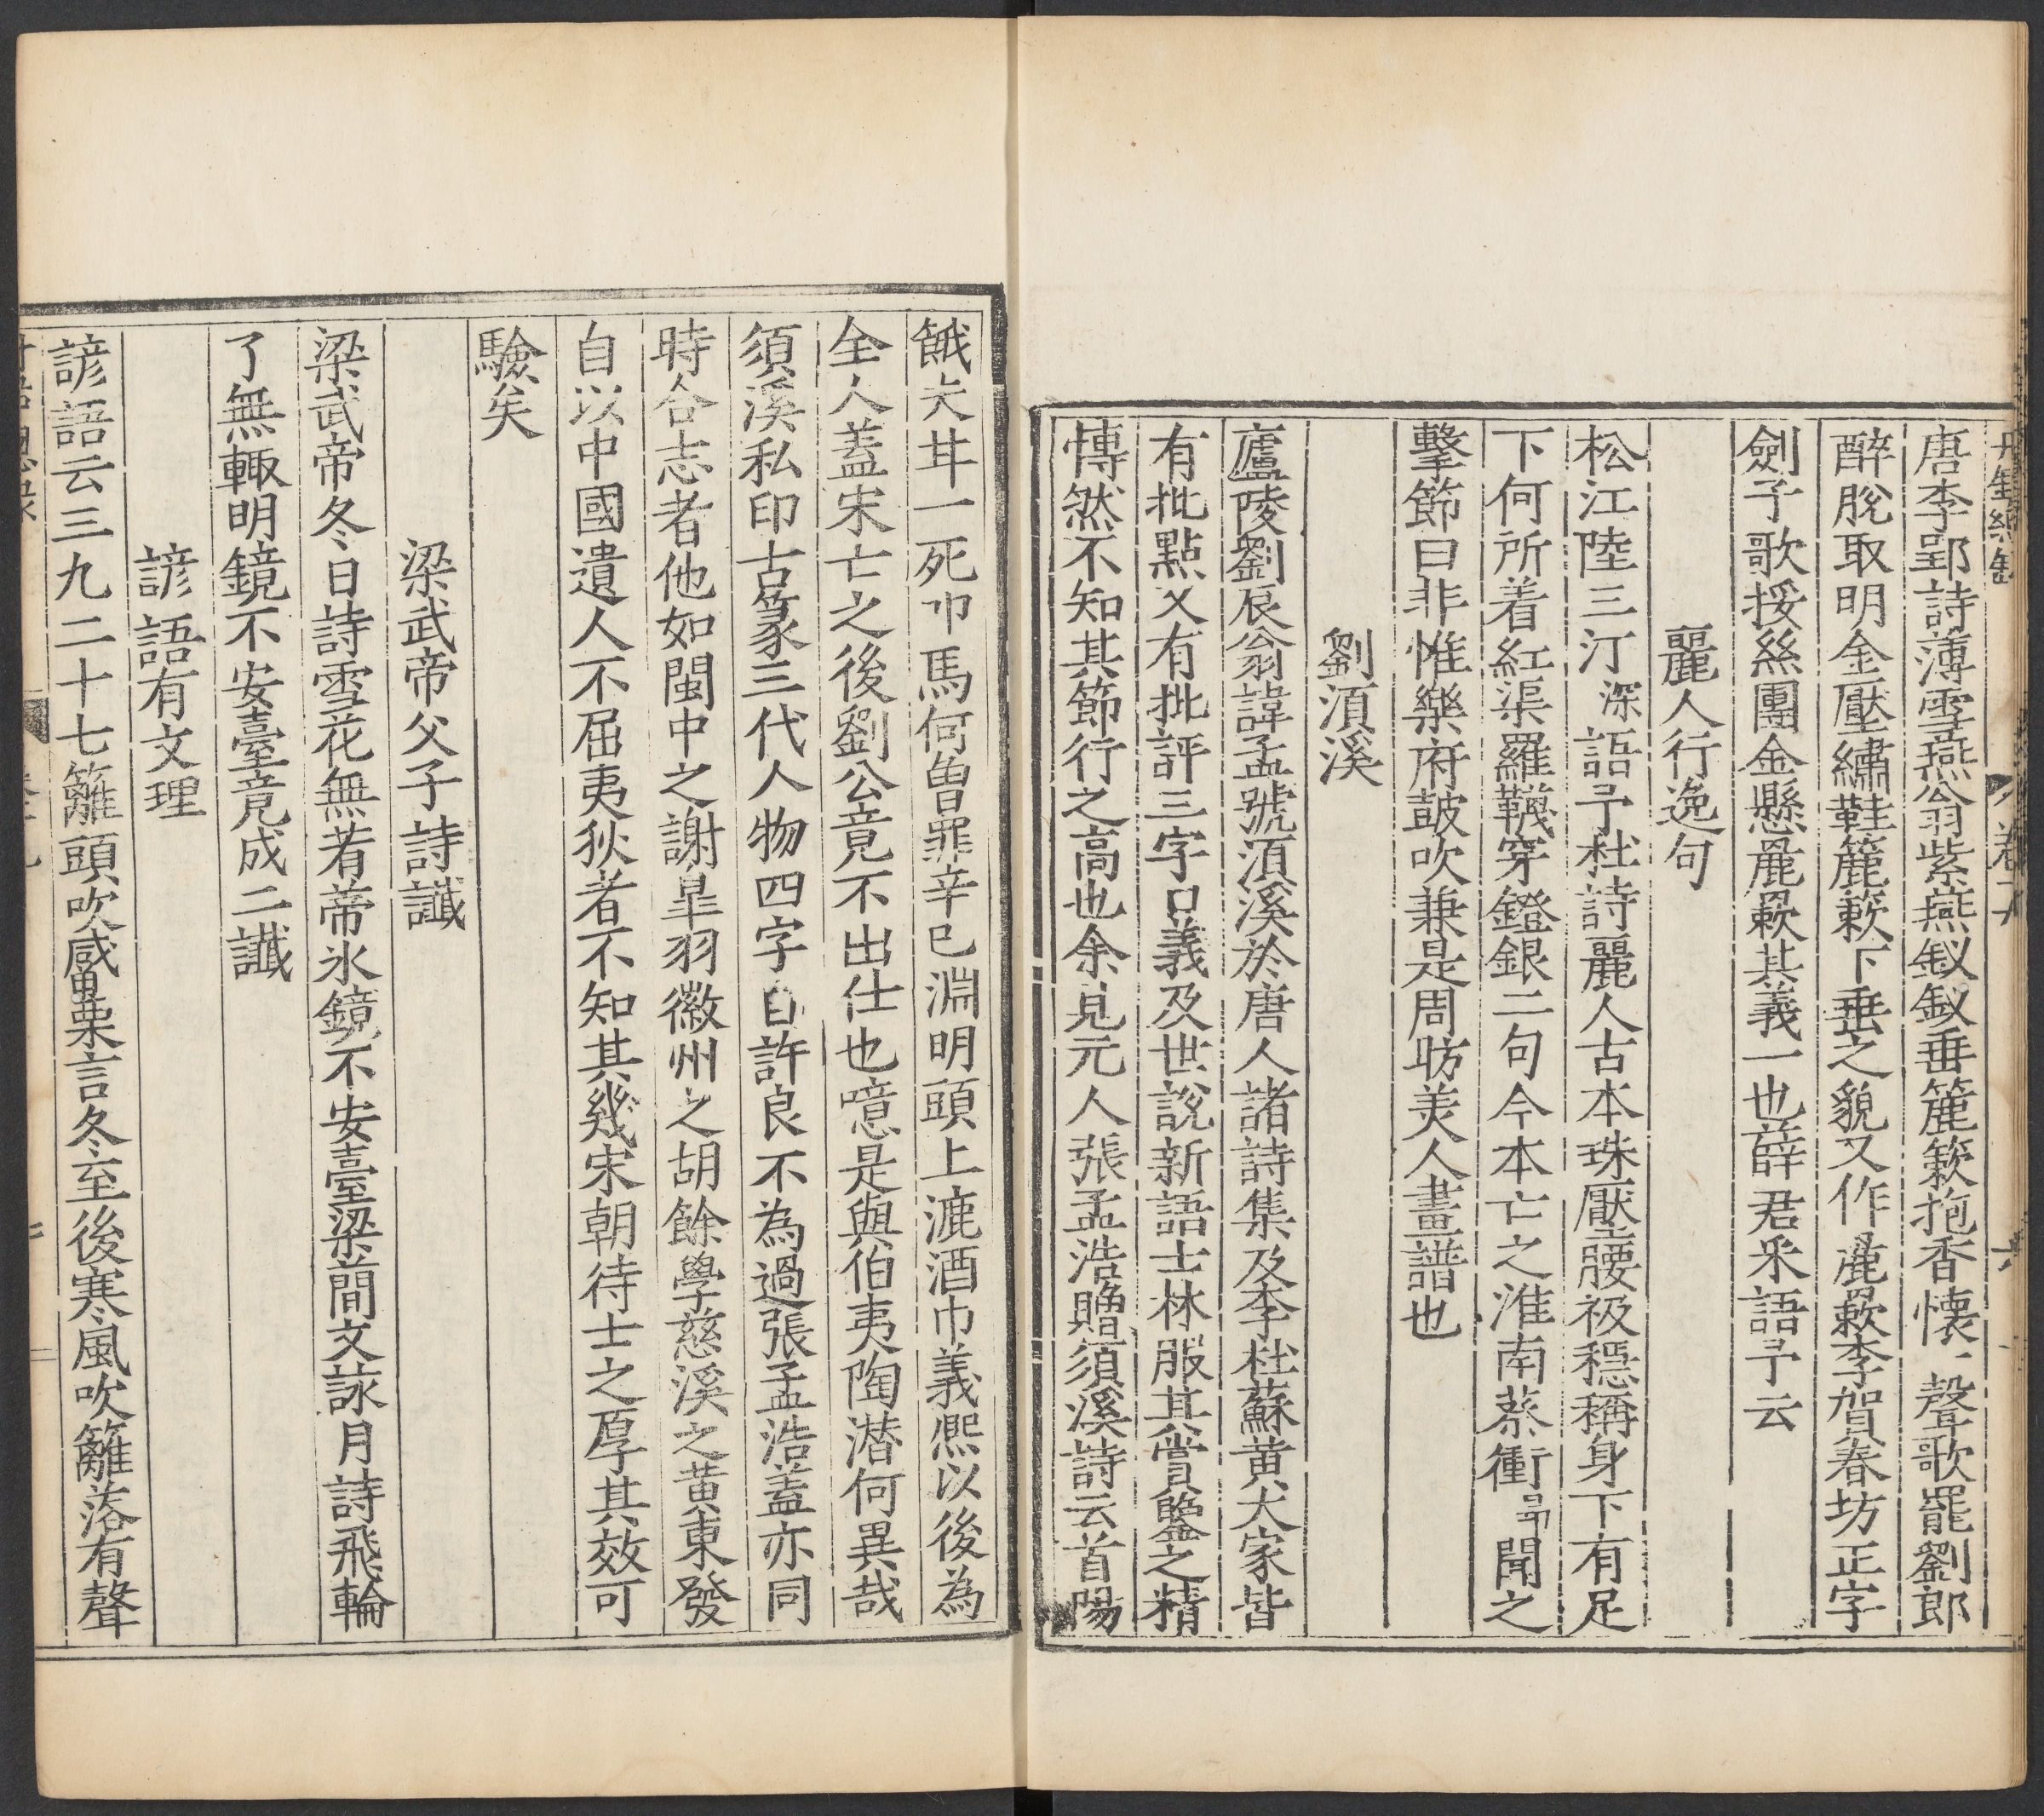 唐李郢詩薄雪燕蓊紫燕釵釵垂簏簌抱香懷一聲歌罷劉郎
醉脫取明金壓繡鞋簏簌下垂之貌又作麗𣤶李賀春坊正字
劍子歌挼絲團金懸麗𣤶其義一也薛君采語予云
麗人行逸句
松江陸三汀深語予杜詩麗人古本珠壓腰衱穩稱身下有足
下何所着紅渠羅韈穿鐙銀二句今本亡之淮南蔡衝昻聞之
擊節曰非惟樂府鼓吹兼是周昉美人畫譜也
劉湏溪
廬陵劉辰翁諱孟號湏溪於唐人諸詩集及李杜蘇黄大家皆
有批點又有批評三字口義及世說新語士林服其賞鑒之精
愽然不知其節行之高也余見元人張孟浩贈須溪詩云首陽
餓夫甘一死叩馬何曽罪辛巳淵明頭上漉酒巾義熈以後為
全人蓋宋亡之後劉公竟不出仕也噫是與伯夷陶潜何異哉
須溪私印古篆三代人物四字自許良不為過張孟浩蓋亦同
時合志者他如閩中之謝皐羽徽州之胡餘學慈溪之黄東發
自以中國遺人不屈夷狄者不知其幾宋朝待士之厚其效可
驗矣
梁武帝父子詩讖
梁武帝冬日詩雪花無若蒂氷鏡不安臺梁簡文詠月詩飛輪
了無輙明鏡不安臺竟成二讖
諺語有文理
諺語云三九二十七籬頭吹觱栗言冬至後寒風吹籬落有聲